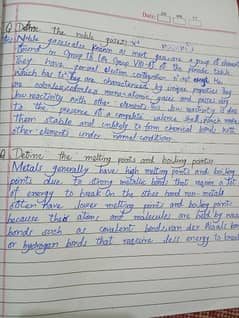 Date:
Q Define the noble gases?
Noble gases also known as inert gases are a group of elements
found in Group 18 (or Group VIII-A) of the periodic table.
They have special electron configuration
which has They are characterized by unique properties
are odorless, colorless, monoatomic gases and possess very
low reactivity with other elements low reactivity is due
to the presence of a complete valence shell which makes
them stable and unlikely to form chemical bonds with
other elements under normal conditions.
Q Define the melting points and boiling points.
Metals generally have high melting points and boiling
points due to strong metallic bonds that require a lot
of energy to break. On the other hand non-metals
often have lower melting points and boiling points
because their atoms and molecules are held by weak
bonds such as covalent bonds, van der Waals bonds
or hydrogen bonds that require less energy to break